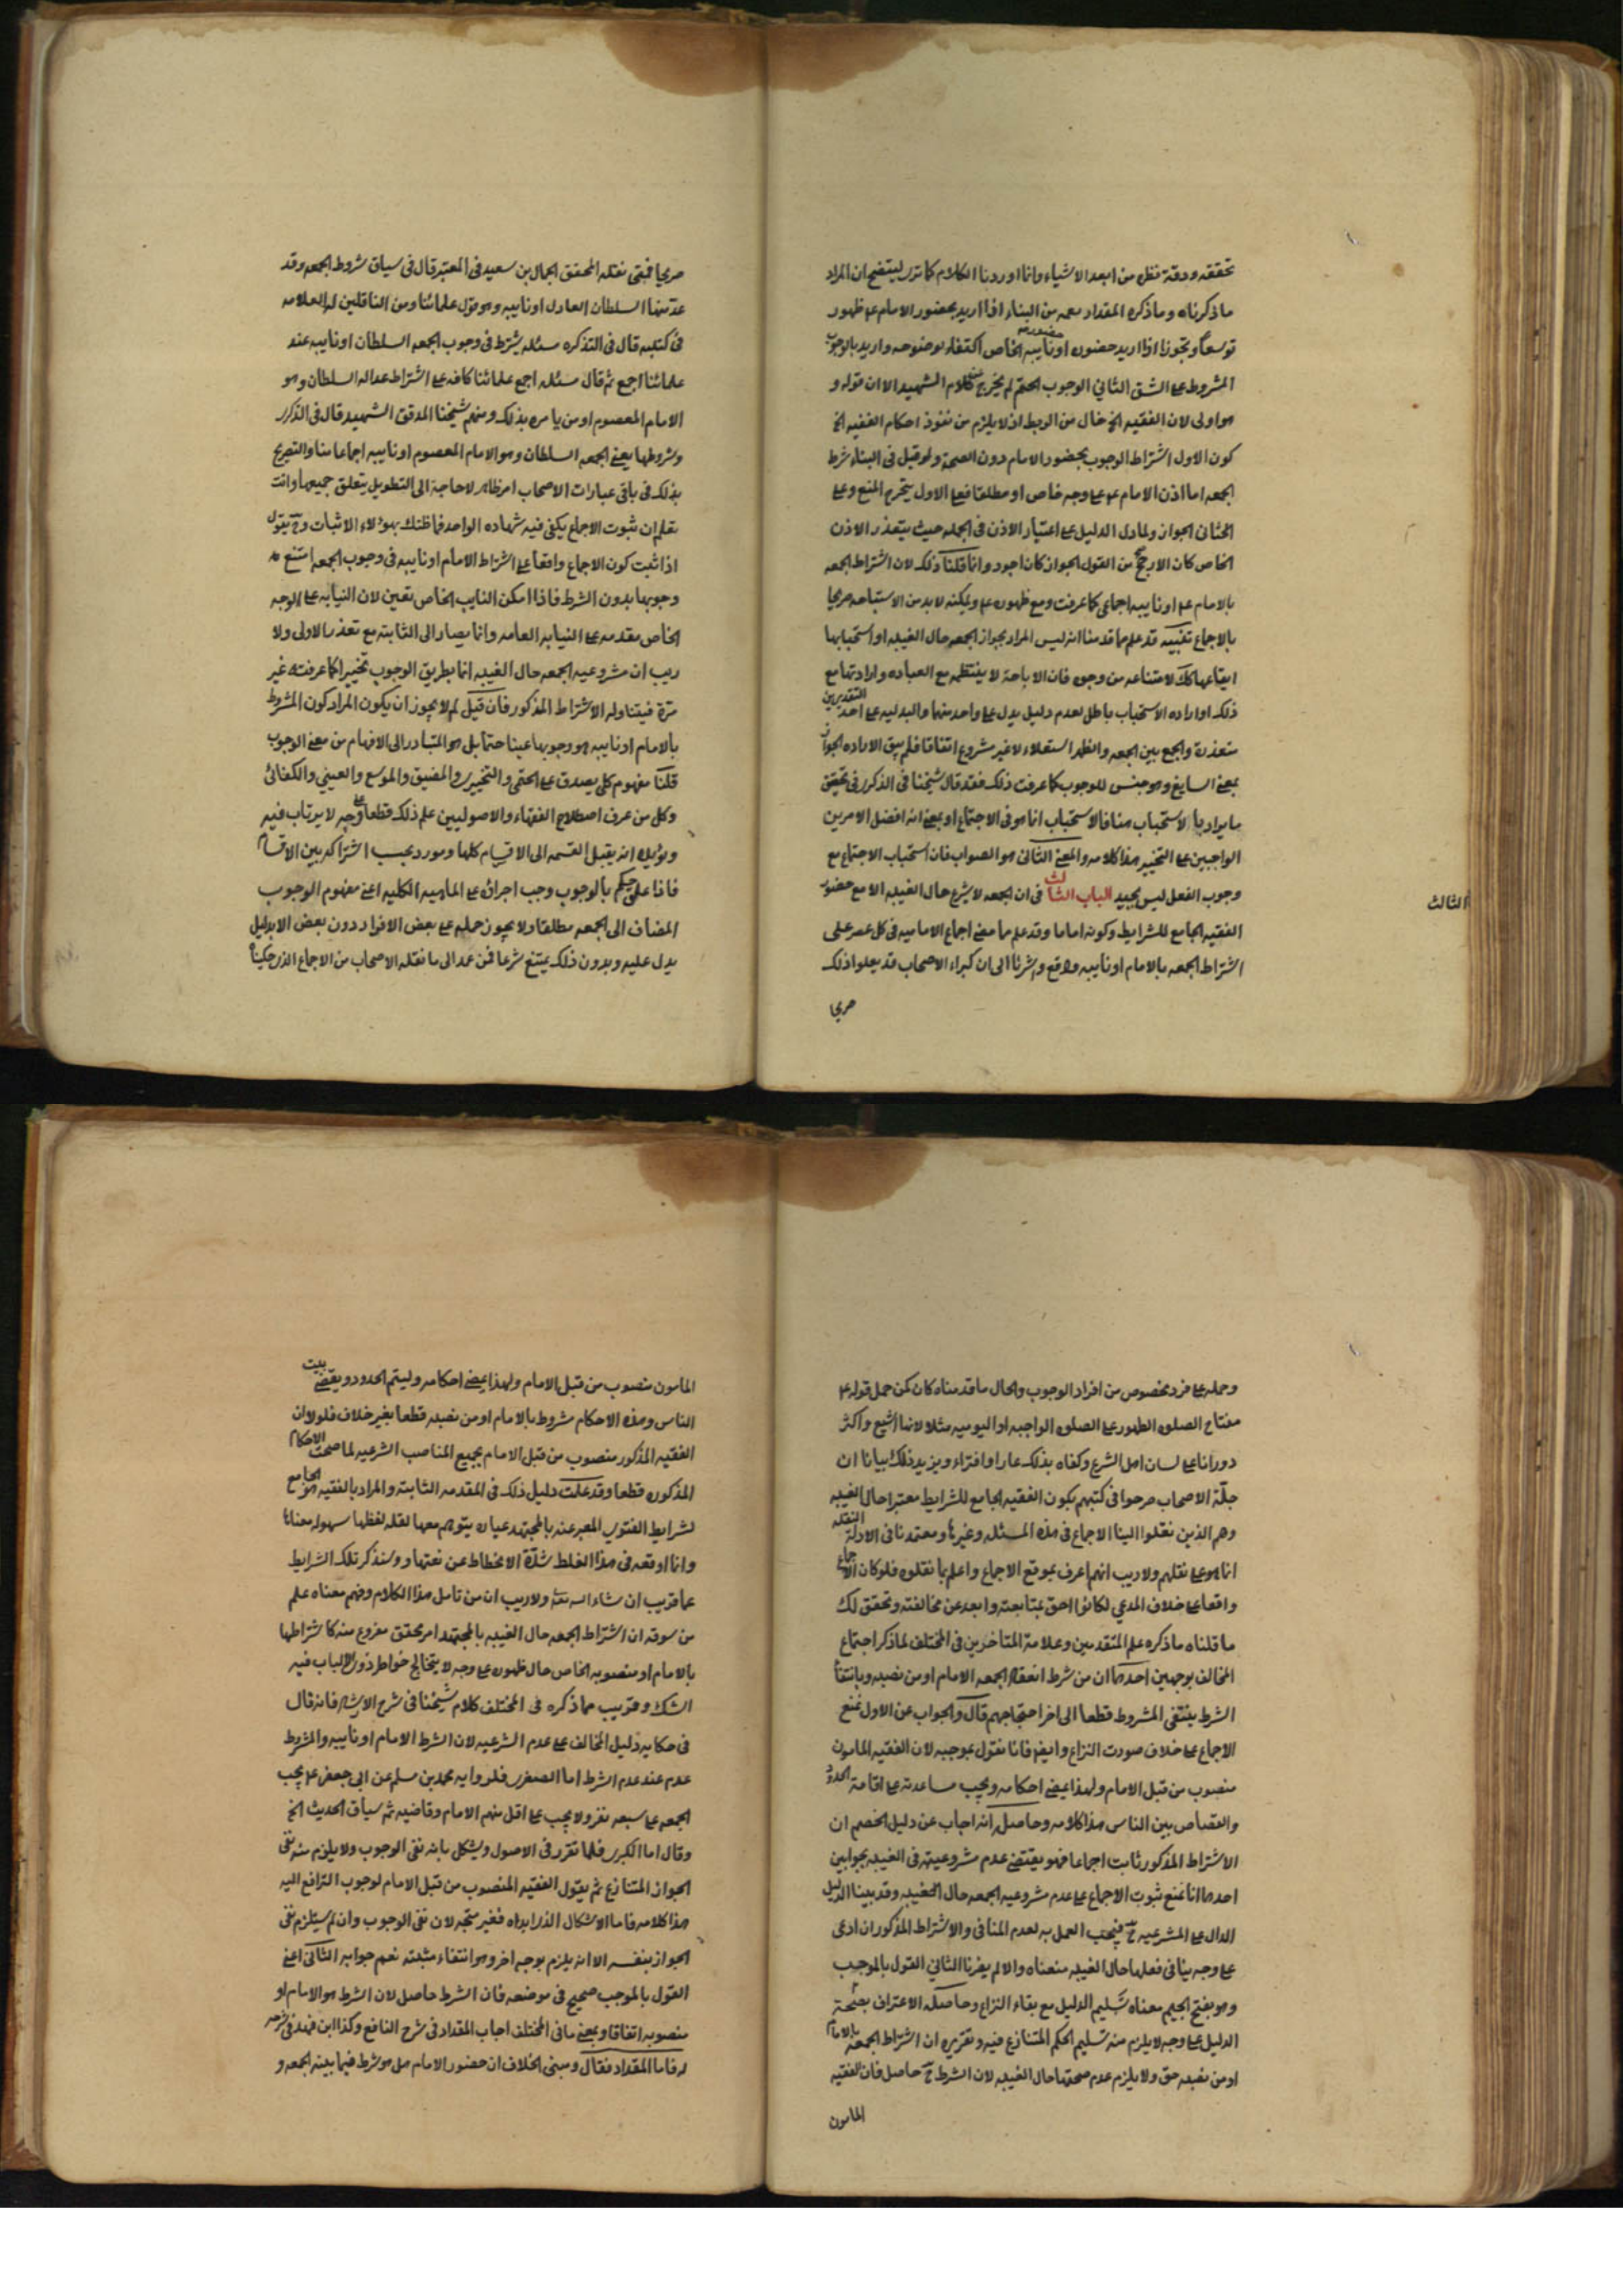 تحققه ودقة نظر من ابعد الاشياء وانا اوردنا الكلام كما ترى ليتضح ان المراد
ما ذكرناه وما ذكره المقداد معه من البناء اذا اريد بحضور الامام ع ظهور
توسعا وتجوزا اذا اريد حضوره او حضور نايبه الخاص اكتفاء بوضوحه واريد بالوجوب
المشروط على الشق الثاني الوجوب الحتم لم يخرج عن كلام الشهيد الا ان قوله و
هو اولى لان الفقيه الخ خال من الربط اذ لا يلزم من نفوذ احكام الفقيه الخ
كون الاول اشتراط الوجوب بحضور الامام دون الصحة ولو قيل في البناء شرط
الجمعه اما اذن الامام ع على وجه خاص او مطلقا فعلى الاول يتخرج المنع وعلى
الثانى الجواز ولما دل الدليل على اعتبار الاذن فى الجمله حيث يتعذر الاذن
الخاص كان الارجح من القول الجواز كان اجود وانا قلنا ذلك لان اشتراط الجمعه
بالامام ع او نايبه اجماعى كما عرفت ومع ظهوره ع وتمكنه لا بد من الاستباحه صريحا
بالاجماع تنبيه قد علم مما قدمنا انه ليس المراد بجواز الجمعه حال الغيبه او استحبابها
ايقاعها كك لامتناعه من وجوه فان الاباحة لا ينتظم مع العباده وارادتها مع
ذلك او اراده الاستحباب باطل لعدم دليل يدل على واحد منهما والبدليه على احد التقديرين
متعذرة والجمع بين الجمعه والظهر استعلاء لا غير مشروع اتفاقا فلم يبق الا اراده الجواز
بمعنى السايغ وهو جنس للوجوب كما عرفت ذلك فقد قال شيخنا فى الذكرى فى تحقيق
ما يراد بالاستحباب هنا فالاستحباب انما هو فى الاجتماع او بمعنى انه افضل الامرين
الواجبين على التخيير هذا كلامه والمعنى الثانى هو الصواب فان استحباب الاجتماع مع
وجوب الفعل ليس بجيد الباب الثالث فى ان الجمعه لا يشرع حال الغيبه الا مع حضور
الثالث
الفقيه الجامع للشرايط وكونه اماما وقد علم ما معنى اجماع الاماميه فى كل عصر على
اشتراط الجمعه بالامام او نايبه واقع واشرنا الى ان كبراء الاصحاب قد نقلوا ذلك
صريحا
صريحا فمن نقله المحقق الجمال بن سعيد فى المعتبر قال فى سياق شروط الجمعه وقد
عد منها السلطان العادل او نايبه وهو قول علمائنا ومن الناقلين له العلامه
فى كتبه قال فى التذكره مسئله يشترط فى وجوب الجمعه السلطان او نايبه عند
علمائنا اجمع ثم قال مسئله اجمع علمائنا كافه على اشتراط عداله السلطان وهو
الامام المعصوم او من يامره بذلك ومنهم شيخنا المدقق الشهيد قال فى الذكرى
وشروطها يعنى الجمعه السلطان وهو الامام المعصوم او نايبه اجماعا منا والتصريح
بذلك فى باقى عبارات الاصحاب امر ظاهر لا حاجة الى التطويل يتعلق جميعها وانت
تعلم ان ثبوت الاجماع يكفى فيه شهاده الواحد فما ظنك بهؤلاء الاثبات وح يقول
اذا ثبت كون الاجماع واقعا على اشتراط الامام او نايبه فى وجوب الجمعه امتنع
وجوبها بدون الشرط فاذا امكن النايب الخاص تعين لان النيابه على الوجه
الخاص مقدمه على النيابه العامه وانا يصار الى الثابته مع تعذر الاولى ولا
ريب ان مشروعيه الجمعه حال الغيبه انما بطريق الوجوب تخييرا كما عرفته غير
مرة فيتناوله الاشتراط المذكور فان قيل لم لا يجوز ان يكون المراد كون المشروط
بالامام او نايبه هو وجوبها عينا حتما بل هو المتبادر الى الافهام من معنى الوجوب
قلنا مفهوم كلى يصدق على الحتمى والتخييرى والمضيق والموسع والعينى والكفائى
وكل من عرف اصطلاح الفقهاء والاصوليين علم ذلك قطعا على وجه لا يرتاب فيه
ويؤيده انه يقبل القسمه الى الاقسام كلها ومورد بحسب اشتراكه بين الاقسام
فاذا على حكم بالوجوب وجب اجراؤه على الماهيه الكليه اعنى مفهوم الوجوب
المضاف الى الجمعه مطلقا ولا يجوز حمله على بعض الافراد دون بعض الا بدليل
يدل عليه وبدون ذلك يمتنع شرعا فمن عمد الى ما نقله الاصحاب من الاجماع الذى حكيناه
وحمله على فرد مخصوص من افراد الوجوب والحال ما قدمناه كان كمن حمل قوله ع
مفتاح الصلوه الطهور على الصلوه الواجبه او اليوميه مثلا لانها اشيع واكثر
دورانا على لسان اهل الشرع وكفاه بذلك عارا وافتراء ويزيد ذلك بيانا ان
جلّة الاصحاب صرحوا فى كتبهم بكون الفقيه الجامع للشرايط معتبرا حال الغيبه
وهم الذين نقلوا الينا الاجماع فى هذه المسئله وغيرها ومعتمدنا فى الادلة النقله
انما هو على نقلهم ولا ريب انهم اعرف بموقع الاجماع واعلم بما نقلوه فلو كان الاجماع
واقعا على خلاف المدعى لكانوا احق بمتابعته وابعد عن مخالفته وتحقق لك
ما قلناه ما ذكره علم المتقدمين وعلامة المتاخرين فى المختلف لما ذكر احتجاج
المخالف بوجهين احدهما ان من شرط انعقاد الجمعه الامام او من نصبه وبانتفاء
الشرط ينتفى المشروط قطعا الى اخر احتجاجهم قال والجواب عن الاول نمنع
الاجماع على خلاف صورت النزاع وايضا فانا نقول بموجبه لان الفقيه المامون
منصوب من قبل الامام ولهذا يمضى احكامه ويجب مساعدته على اقامة الحدود
والقصاص بين الناس هذا كلامه وحاصله انه اجاب عن دليل الخصم ان
الاشتراط المذكور ثابت اجماعا فهو يقتضى عدم مشروعيته فى الغيبه بجوابين
احدهما انا نمنع ثبوت الاجماع على عدم مشروعيه الجمعه حال الغيبه وقد بينا الدليل
الدال على المشرعيه ح فيجب العمل به لعدم المنافى والاشتراط المذكور ان ادعى
على وجه ينافى فعلها حال الغيبه منعناه والا لم يضرنا الثاني القول بالموجب
وهو بفتح الجيم معناه تسليم الدليل مع بقاء النزاع وحاصله الاعتراف بصحة
الدليل على وجه لا يلزم منه تسليم الحكم المتنازع فيه وتقريره ان اشتراط الجمعه بالامام
او من نصبه حق ولا يلزم عدم صحتها حال الغيبه لان الشرط ح حاصل فان الفقيه
المامون
المامون منصوب من قبل الامام ولهذا يمضى احكامه وليتم الحدود ويقضى بيت
الناس وهذه الاحكام مشروط بالامام او من نصبه قطعا بغير خلاف فلولا ان
الفقيه المذكور منصوب من قبل الامام بجميع المناصب الشرعيه لما صحت الاحكام
المذكوره قطعا وقد علمت دليل ذلك فى المقدمه الثابته والمراد بالفقيه هو الجامع
لشرايط الفتوى المعبر عنه بالمجتهد عباره يتوهم معها لقله لفظها سهوله معناها
وانا اوقعه فى هذا الغلط شدّة الانحطاط عن نعتها وسنذكر تلك الشرايط
عما قريب ان شاء الله تعالى ولا ريب ان من تامل هذا الكلام وفهم معناه علم
من سوقه ان اشتراط الجمعه حال الغيبه بالمجتهد امر محقق مفروغ منه كاشتراطها
بالامام او منصوبه الخاص حال ظهوره على وجه لا يتخالج خواطر ذوى الالباب فيه
الشك وقريب مما ذكره فى المختلف كلام شيخنا فى شرح الارشاد فانه قال
فى حكايه دليل المخالف على عدم الشرعيه لان الشرط الامام او نايبه والمشروط
عدم عند عدم الشرط اما الصغرى فلروايه محمد بن مسلم عن ابى جعفر ع يجب
الجمعه على سبعه نفر ولا يجب على اقل منهم الامام وقاضيه ثم سياق الحديث الخ
وقال اما الكبرى فلما تقرر فى الاصول ويشكل بانه نفى الوجوب ولا يلزم منه نفى
الجواز المتنازع ثم يقول الفقيه المنصوب من قبل الامام لوجوب الترافع اليه
هذا كلامه فاما الاشكال الذى ابداه فغير متجه لان نفى الوجوب وان لم يستلزم نفى
الجواز بنفسه الا انه يلزم بوجه اخر وهو انتفاء مثبته نعم جوابه الثانى اعنى
القول بالموجب صحيح فى موضعه فان الشرط حاصل لان الشرط هو الامام او
منصوبه اتفاقا وبمعنى ما فى المختلف اجاب المقداد فى شرح النافع وكذا ابن فهد فى شرحه
له فاما المقداد فقال ومبنى الخلاف ان حضور الامام هل هو شرط فيما بينه الجمعه و